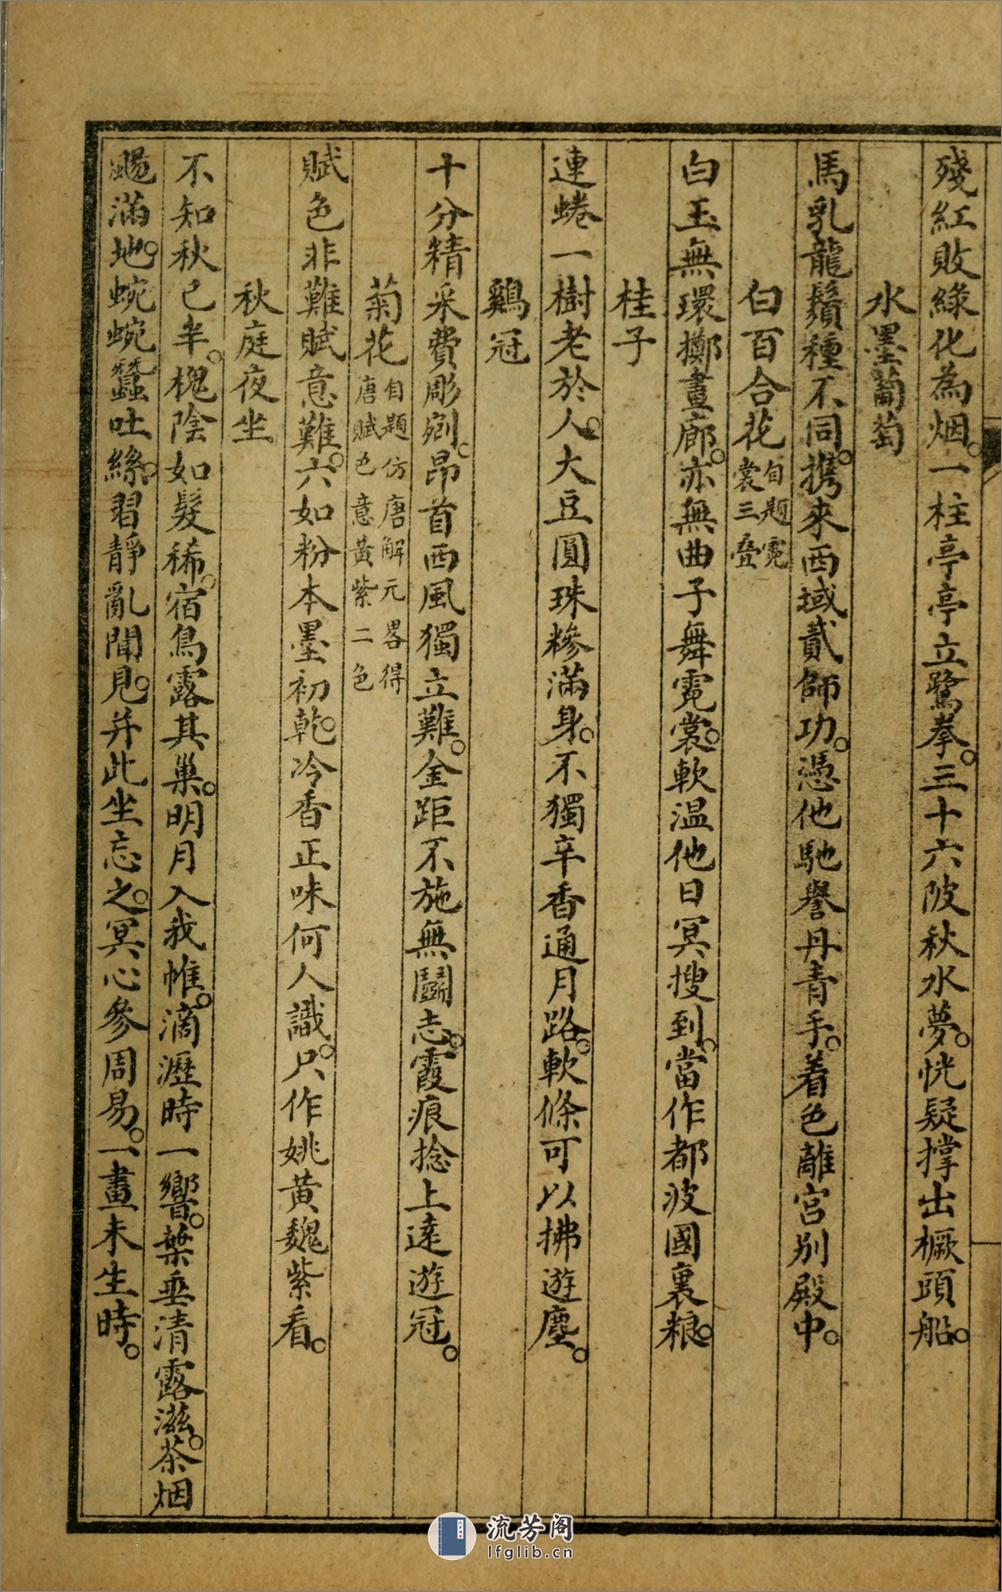 殘紅敗綠化為烟。一柱亭亭立鷺拳。三十六陂秋水夢。恍疑撐出橛頭船。
水墨葡萄
馬乳龍鬚種不同。携來西域貳師功。憑他馳譽丹青手。着色離宮別殿中。
白百合花自題霓裳三疊
白玉無環擲畫廊。亦無曲子舞霓裳。軟温他日冥搜到。當作都波國裏粮。
桂子
連蜷一樹老於人。大豆圓珠糝滿身。不獨辛香通月路。軟條可以拂遊塵。
鷄冠
十分精采費彫剜。昂首西風獨立難。金距不施無鬭志。霞痕捻上遠遊冠。
菊花自題仿唐解元畧得唐賦色意黃紫二色
賦色非難賦意難。六如粉本墨初乾。冷香正味何人識。只作姚黃魏紫看。
秋庭夜坐
不知秋已半。槐陰如髮稀。宿鳥露其巢。明月入我帷。滴瀝時一響。葉垂清露滋。茶烟
颺滿地。蜿蜿蠶吐絲。習靜亂聞見。并此坐忘之。冥心參周易。一畫未生時。
流芳阁
lfglib.cn